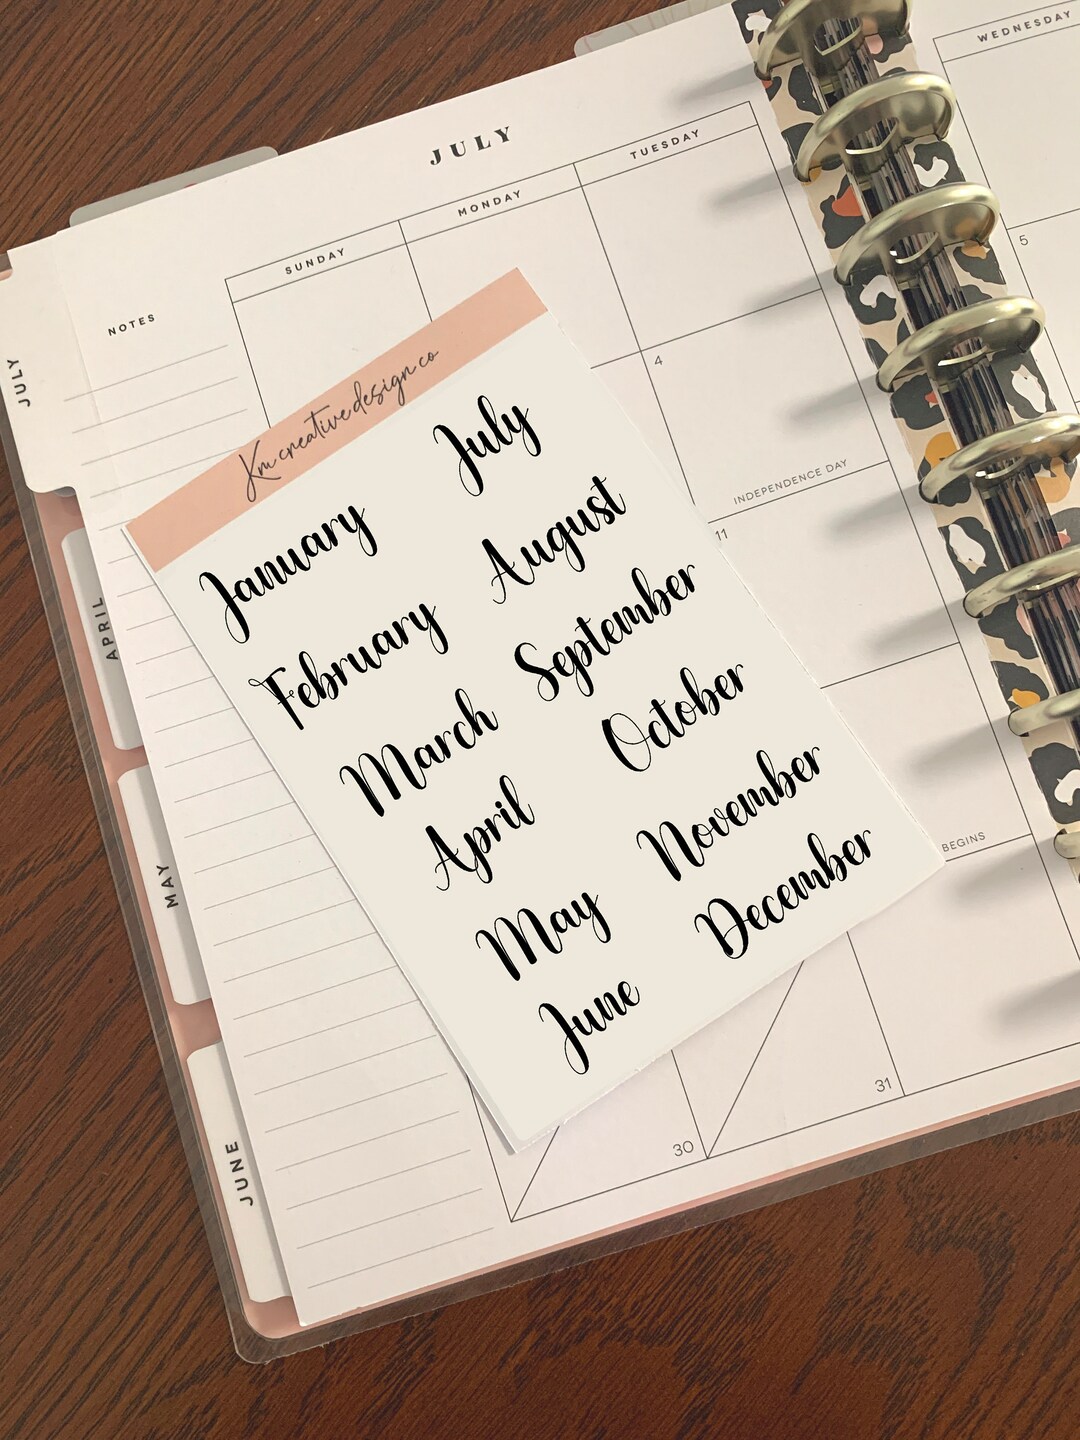 JULY
SUNDAY
MONDAY
TUESDAY
WEDNESDAY
NOTES
JULY
APRIL
MAY
JUNE
4
INDEPENDENCE DAY
11
BEGINS
5
30
31
Km creative design co
January
February
March
April
May
June
July
August
September
October
November
December